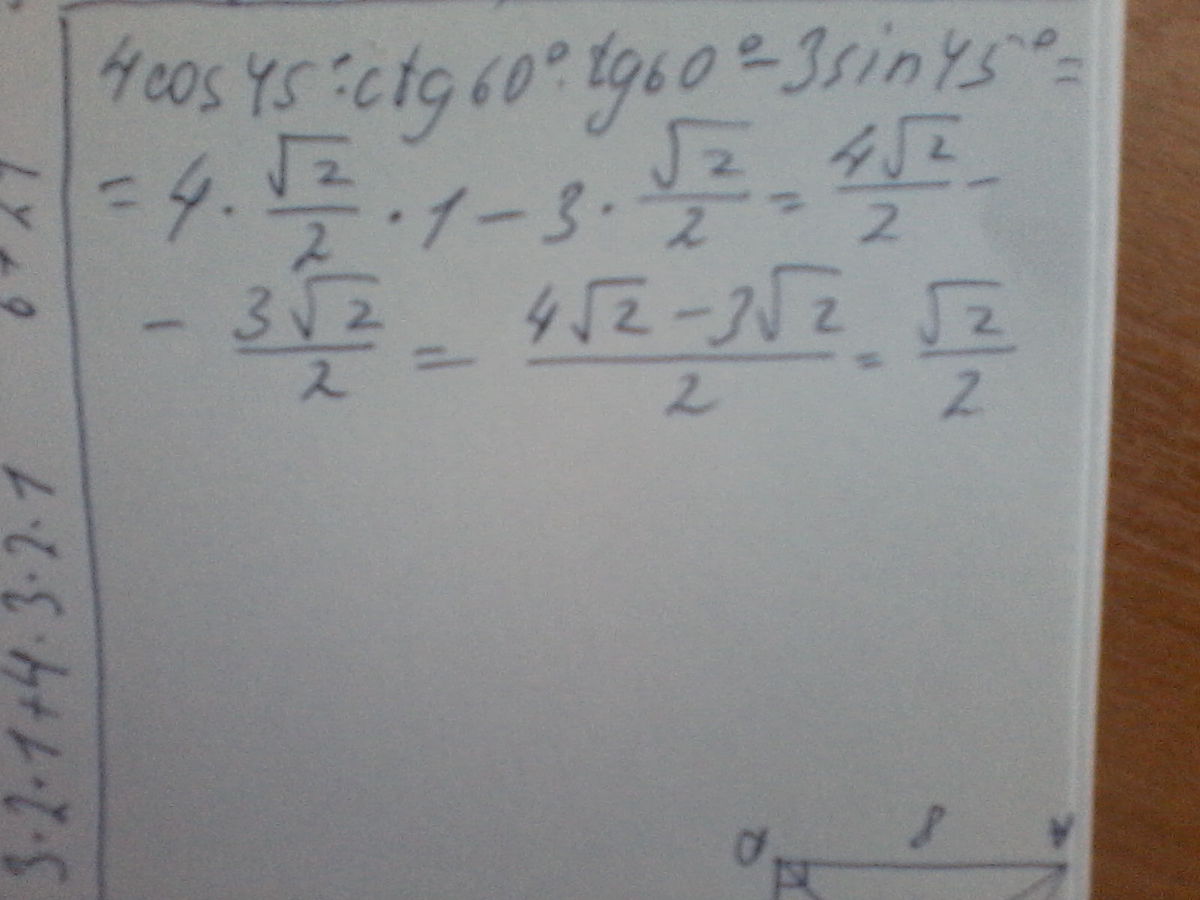 4cos45°·ctg60°·tg60°-3sin45°=
=4·√2/2·1-3·√2/2=4√2/2-
-3√2/2=4√2-3√2/2=√2/2
3·2·1+4·3·2·1
8